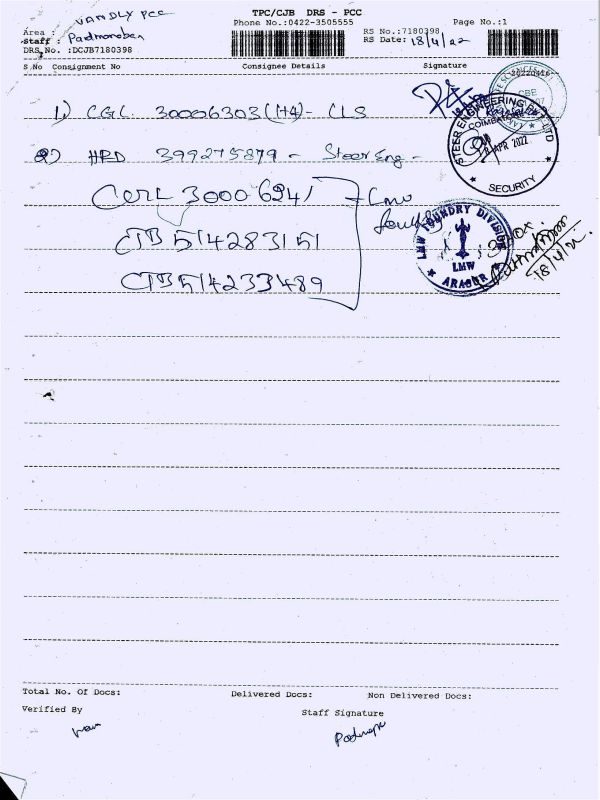 TPC/CJB DRS - PCC
Phone No.:0422-3505555 Page No.:1
VANDLY PCC
Area :
Staff : Padmanaban
DRS No. :DCJB7180398
RS No.:7180398
RS Date: 18/4/22
S No Consignment No Consignee Details Signature
20220416
CBE
1) CGL 30006303 (H4) - CLS
STEER ENGINEERING PVT LTD
COIMBATORE
APR 2022
SECURITY
2) HRD 399275879 - Steer Eng -
CORL 30006241
Lmw
CTB 514283151
CTB 514233489
LMW FOUNDRY DIVISION
LMW
ARASUR
18/4/22
Total No. Of Docs: Delivered Docs: Non Delivered Docs:
Verified By Staff Signature